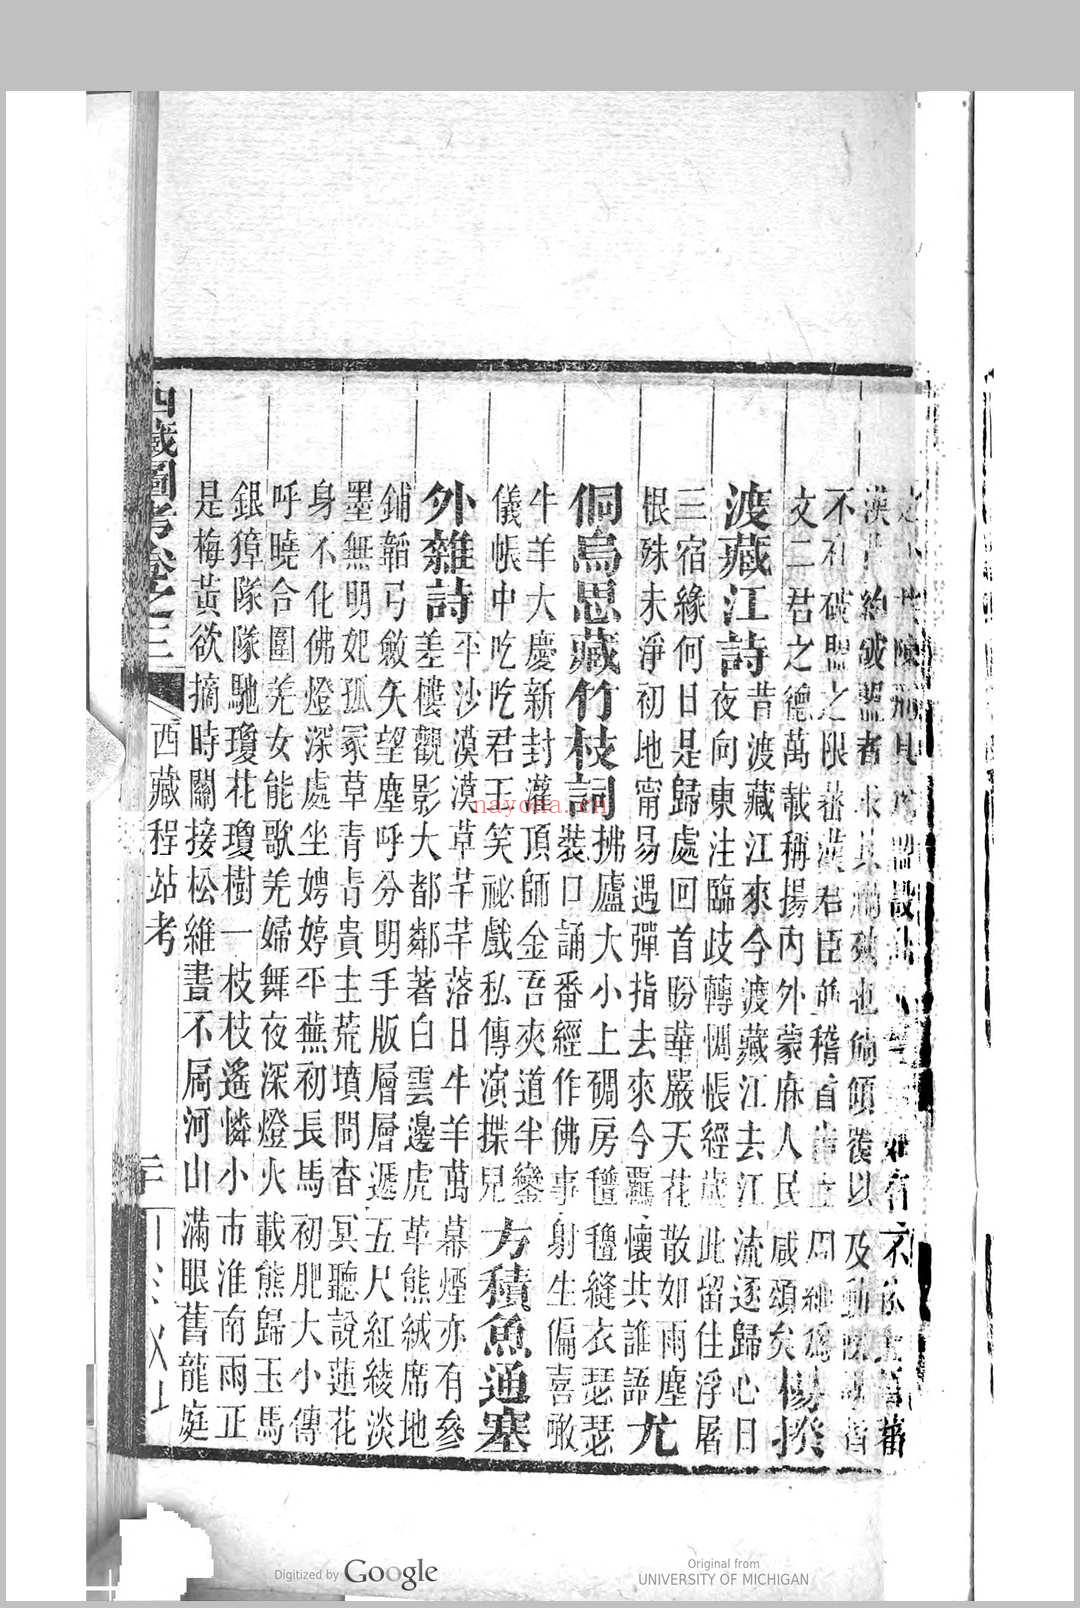 陳刑其為盟設
漢背約破盟者
不在破盟之限蕃漢君臣並稽首告立周細為
文二君之德萬載稱揚內外蒙庥人民咸頌矣楊揆
渡藏江詩昔渡藏江來今渡藏江去江流逐歸心日
夜向東注臨歧轉惆悵經歲此留住浮屠
三宿緣何日是歸處回首盼華嚴天花散如雨塵
根殊未淨初地甯易遇彈指去來今羈懷共誰語尤
侗烏思藏竹枝詞拂廬大小上碉房氆氌縫衣瑟瑟
裝口誦番經作佛事射生偏喜噉
牛羊大慶新封灌頂師金吾夾道半鑾
儀帳中吃吃君王笑祕戲私傳演揲兒方積魚通塞
外雜詩平沙漠漠草芊芊落日牛羊萬幕煙亦有參
差樓觀影大都鄰著白雲邊虎革熊絨席地
鋪韜弓斂矢望塵呼分明手版層層遞五尺紅綾淡
墨無明妃孤冢草青青貴主荒墳問杳冥聽說蓮花
身不化佛燈深處坐娉婷平蕪初長馬初肥大小傳
呼曉合圍羌女能歌羌婦舞夜深燈火載熊歸玉馬
銀獐隊隊馳瓊花瓊樹一枝枝遙憐小市淮南雨正
是梅黃欲摘時關接松維晝不扃河山滿眼舊龍庭
西藏圖考卷之三 西藏程站考
nayona.cn
Digitized by Google
Original from
UNIVERSITY OF MICHIGAN